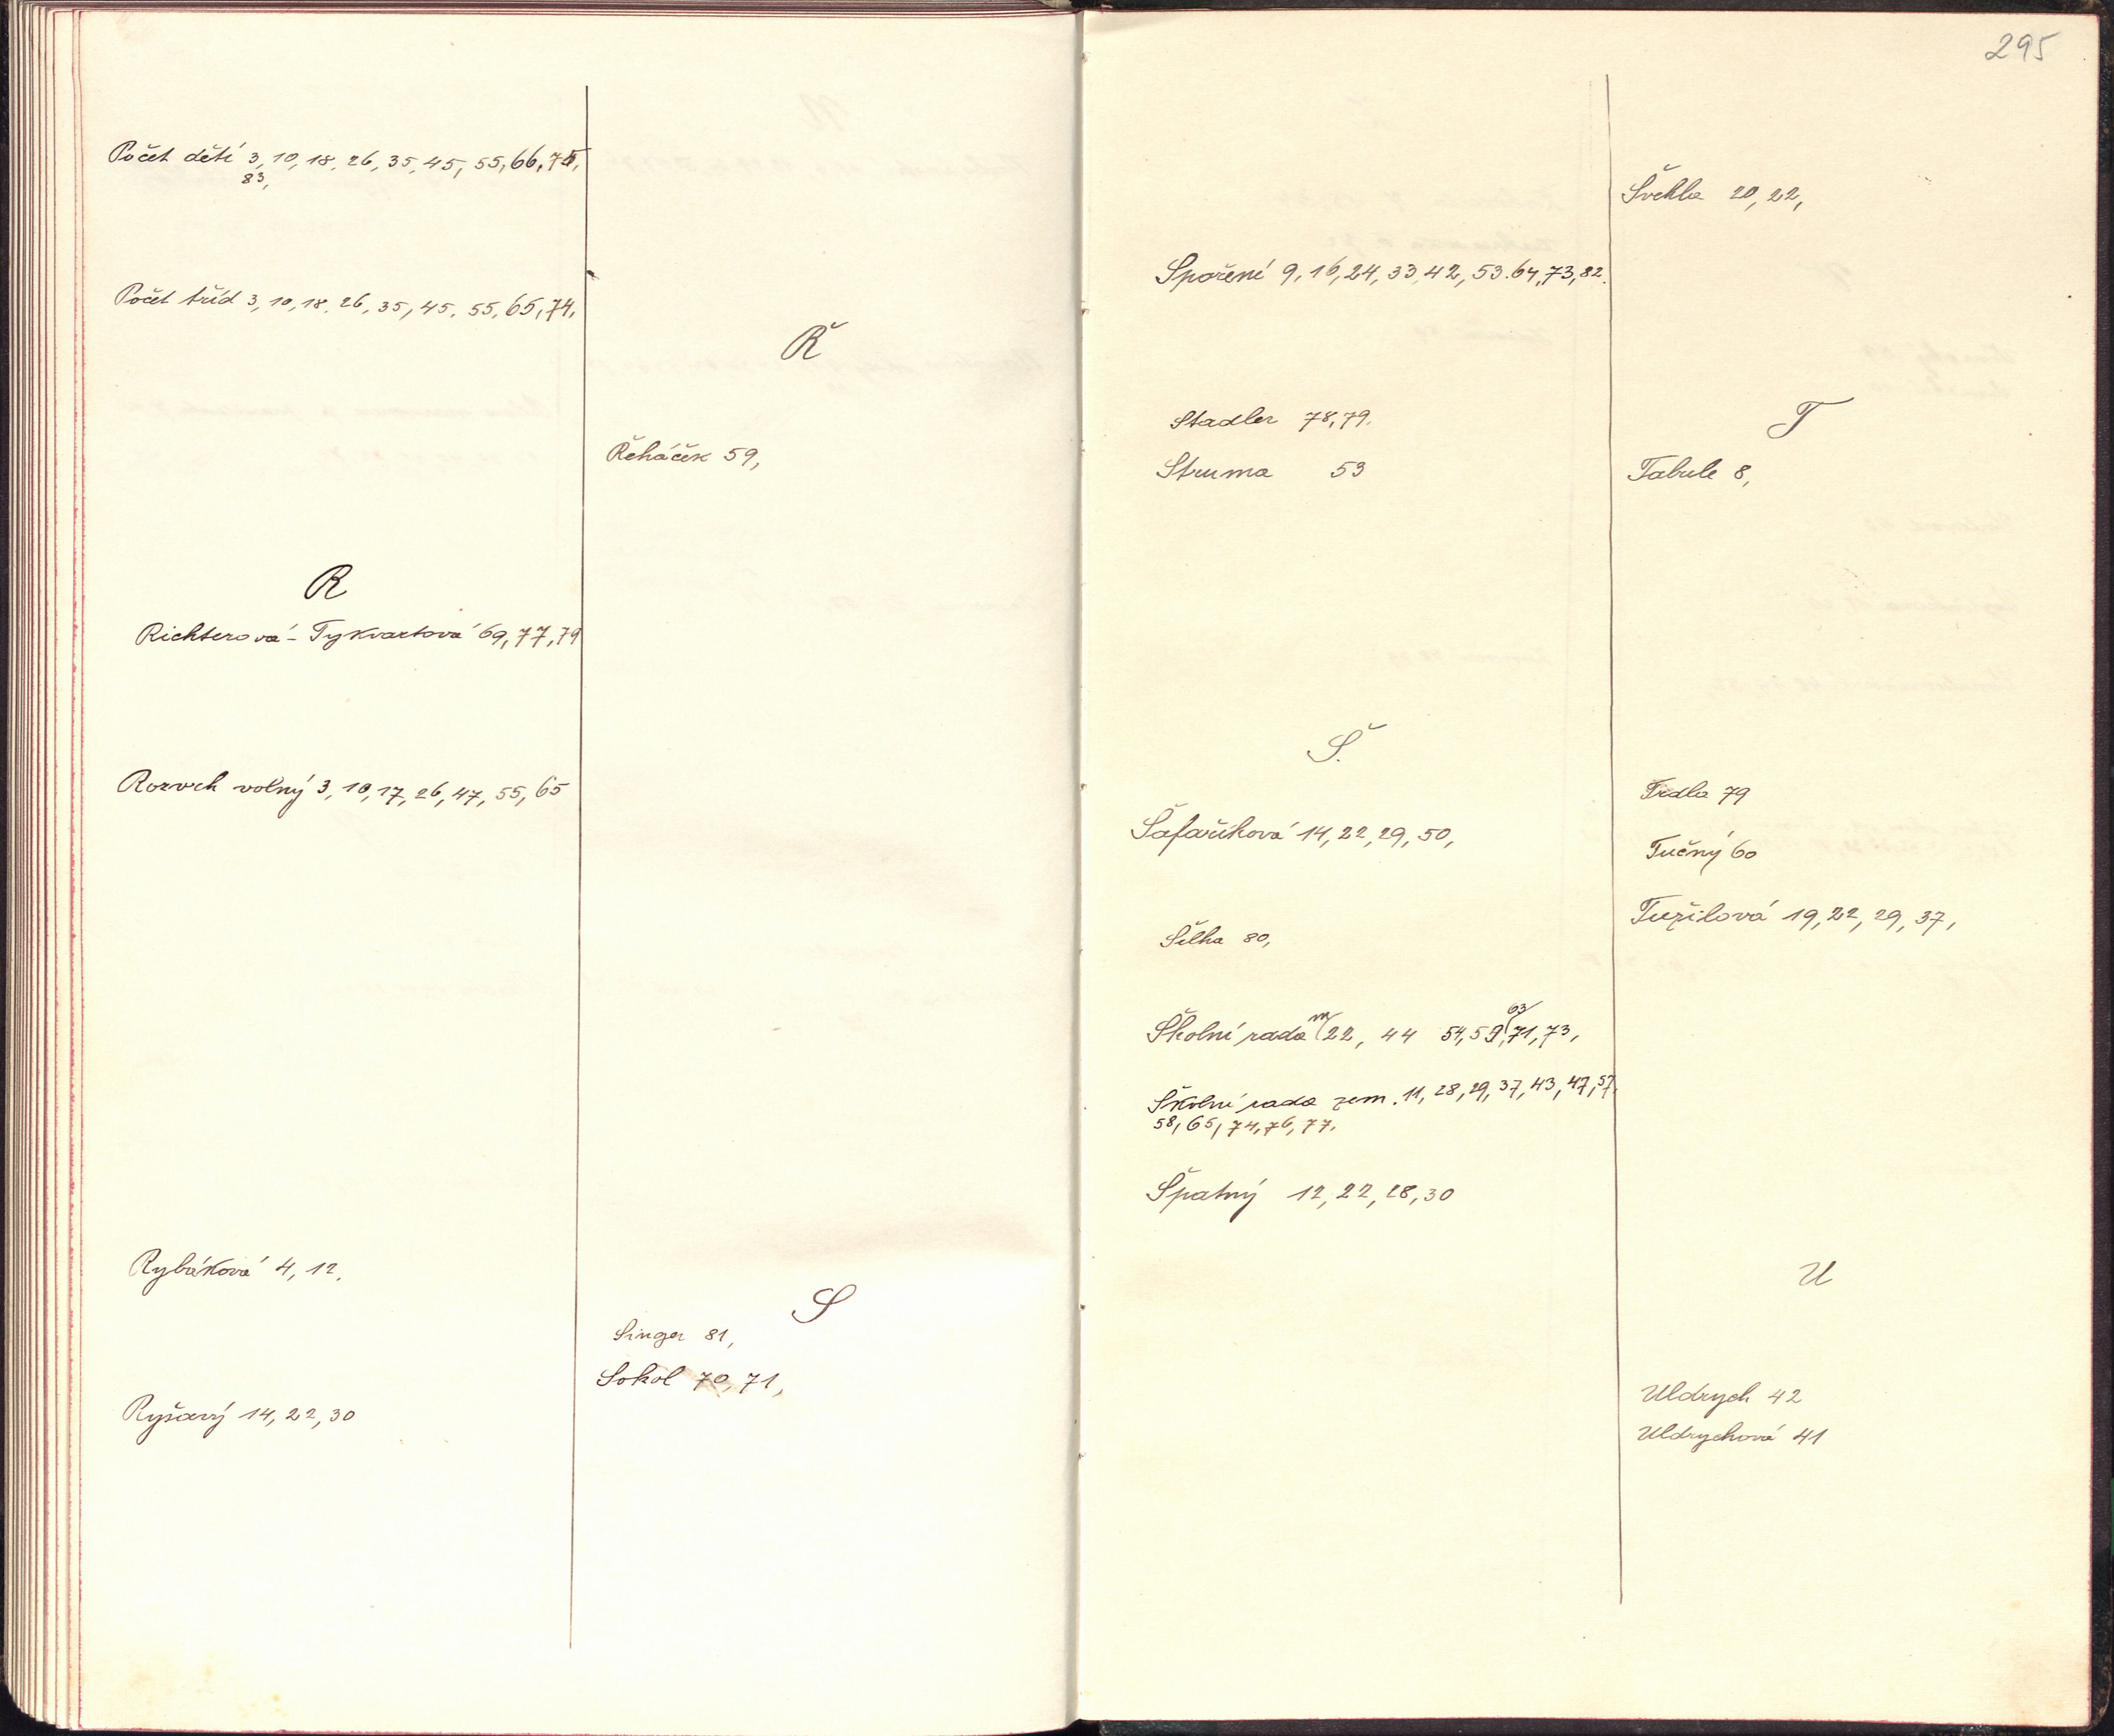 Počet dětí 3, 10, 18, 26, 35, 45, 55, 66, 75,
83,
Počet tříd 3, 10, 18, 26, 35, 45, 55, 65, 74,
R
Richterová - Tykvartová 69, 77, 79
Rozvrh volný 3, 10, 17, 26, 47, 55, 65
Rybáková 4, 12,
Ryšavý 14, 22, 30
Ř
Řeháček 59,
S
Singer 81,
Sokol 70, 71,
295
Spoření 9, 16, 24, 33, 42, 53. 64, 73, 82.
Stadler 78, 79.
Struma 53
Š.
Šafaříková 14, 22, 29, 50,
Šilha 80,
63
Školní rada m 22, 44 54, 59, 71, 73,
Školní rada zem. 11, 28, 29, 37, 43, 47, 57,
58, 65, 74, 76, 77.
Špatný 12, 22, 28, 30
Švehla 20, 22,
T
Tabule 8,
Trdla 79
Tučný 60
Tužilová 19, 22, 29, 37,
U
Uldrych 42
Uldrychová 41